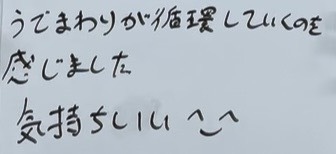 うでまわりが循環していくのを
感じました
気持ちいい ^_^